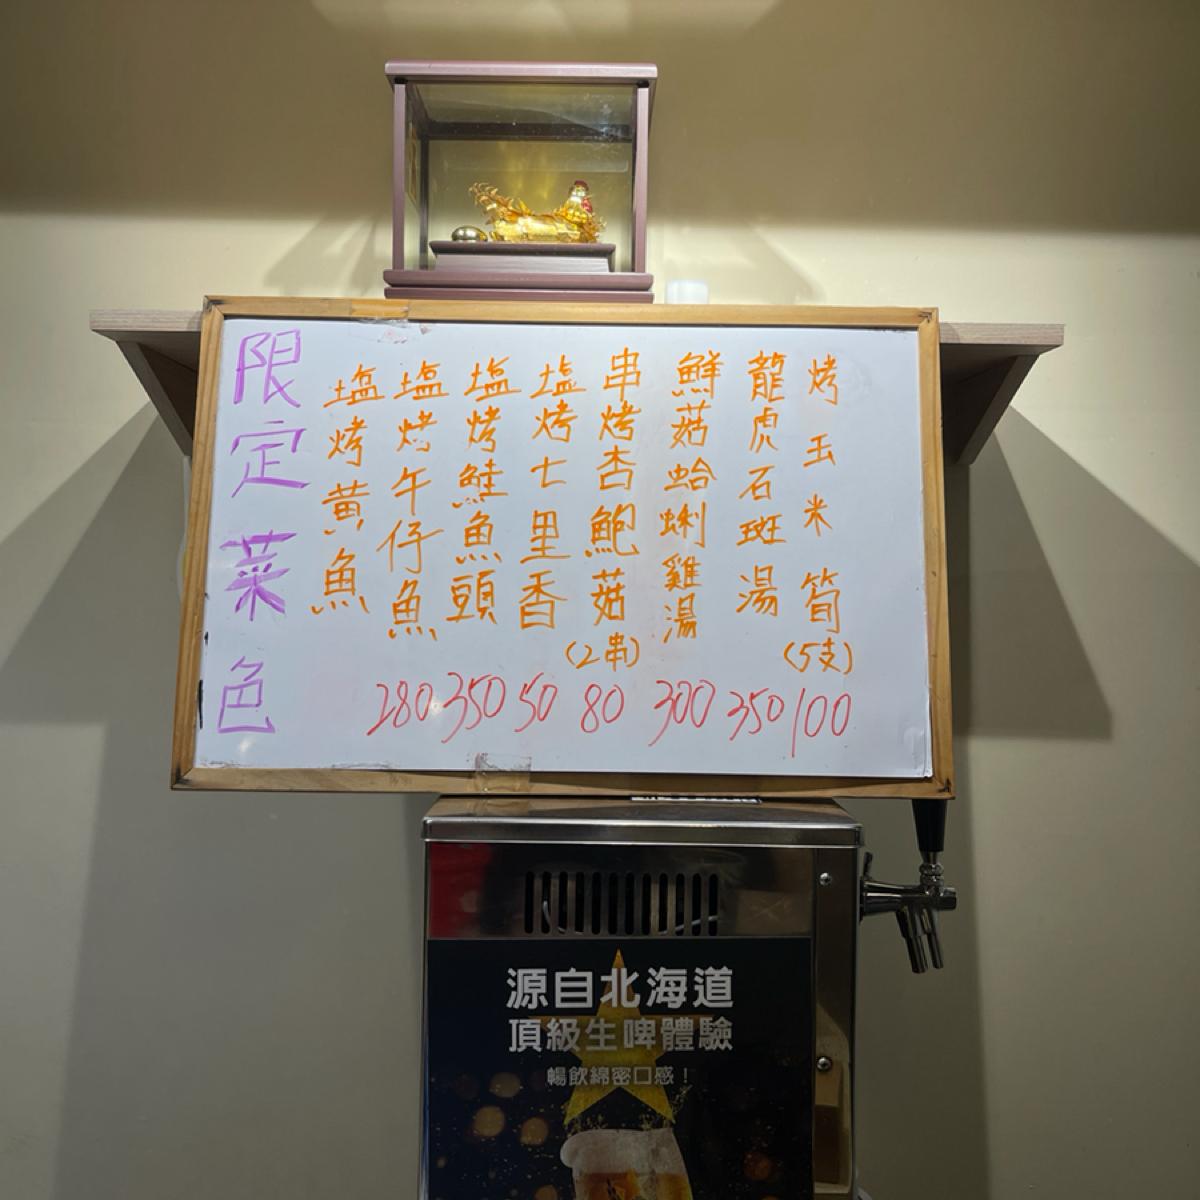 限定菜色
塩烤黃魚
塩烤午仔魚 280
塩烤鮭魚頭 350
塩烤七里香 50
串烤杏鮑菇(2串) 80
鮮菇蛤蜊雞湯 300
龍虎石斑湯 350
烤玉米筍(5支) 100
源自北海道
頂級生啤體驗
暢飲綿密口感！